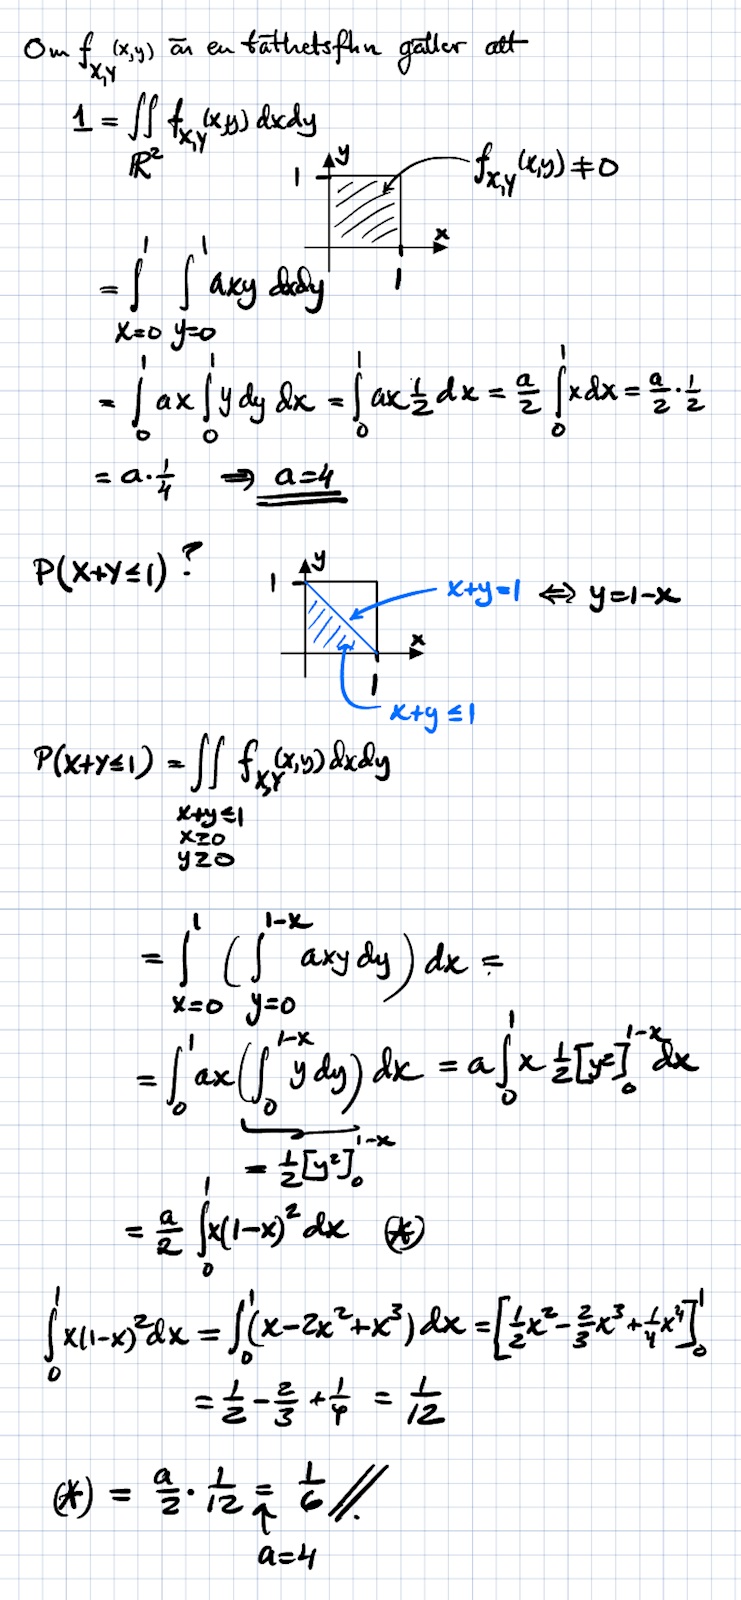 Om f_{X,Y}(x,y) är en täthetsfkn gäller att
1 = ∬_{ℝ²} f_{X,Y}(x,y) dxdy
y
1
f_{X,Y}(x,y) ≠ 0
x
1
= ∫_{x=0}^{1} ∫_{y=0}^{1} axy dxdy
= ∫_0^1 ax ∫_0^1 y dy dx = ∫_0^1 ax 1/2 dx = a/2 ∫_0^1 x dx = a/2 · 1/2
= a · 1/4 ⇒ a=4
P(X+Y≤1) ?
y
1
x+y=1 ⇔ y=1-x
x
1
x+y ≤ 1
P(X+Y≤1) = ∬ f_{X,Y}(x,y) dxdy
x+y≤1
x≥0
y≥0
= ∫_{x=0}^{1} ( ∫_{y=0}^{1-x} axy dy ) dx =
= ∫_0^1 ax ( ∫_0^{1-x} y dy ) dx = a ∫_0^1 x 1/2 [y²]_0^{1-x} dx
= 1/2 [y²]_0^{1-x}
= a/2 ∫_0^1 x(1-x)² dx (*)
∫_0^1 x(1-x)² dx = ∫_0^1 (x-2x²+x³) dx = [1/2 x² - 2/3 x³ + 1/4 x⁴]_0^1
= 1/2 - 2/3 + 1/4 = 1/12
(*) = a/2 · 1/12 = 1/6 //.
↑
a=4